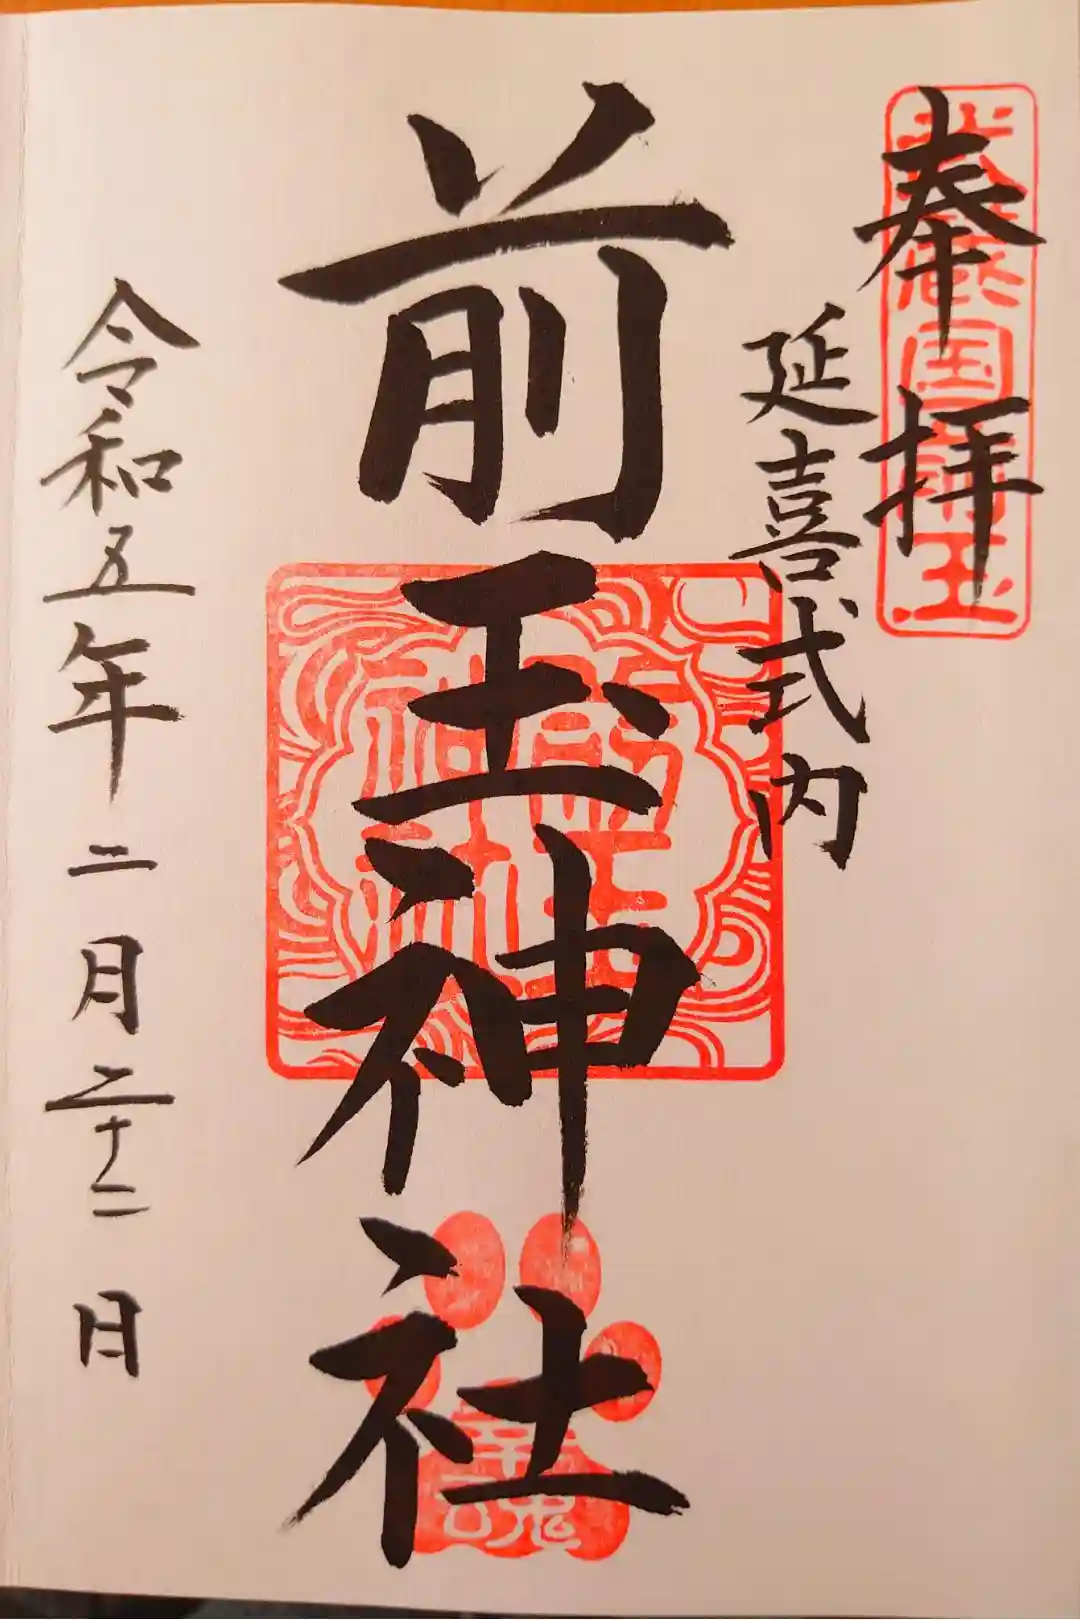 奉拝
武蔵国前玉
延喜式内
前玉神社
前玉神社
幸魂
令和五年二月二十二日